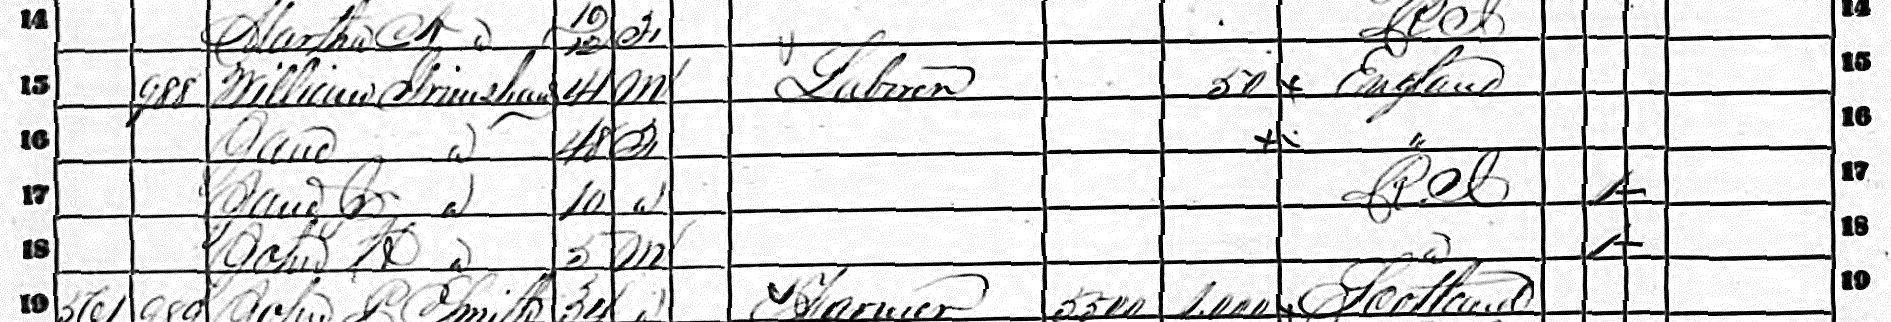 14 Martha A " 10/12 F R.I. 14
15 988 William Grimshaw 41 M Laborer 50 England 15
16 Jane " 48 F " 16
17 Jane " 10 " R.I. 17
18 John " 5 M " 18
19 989 John Smith 34 " Farmer 1,000 Scotland 19